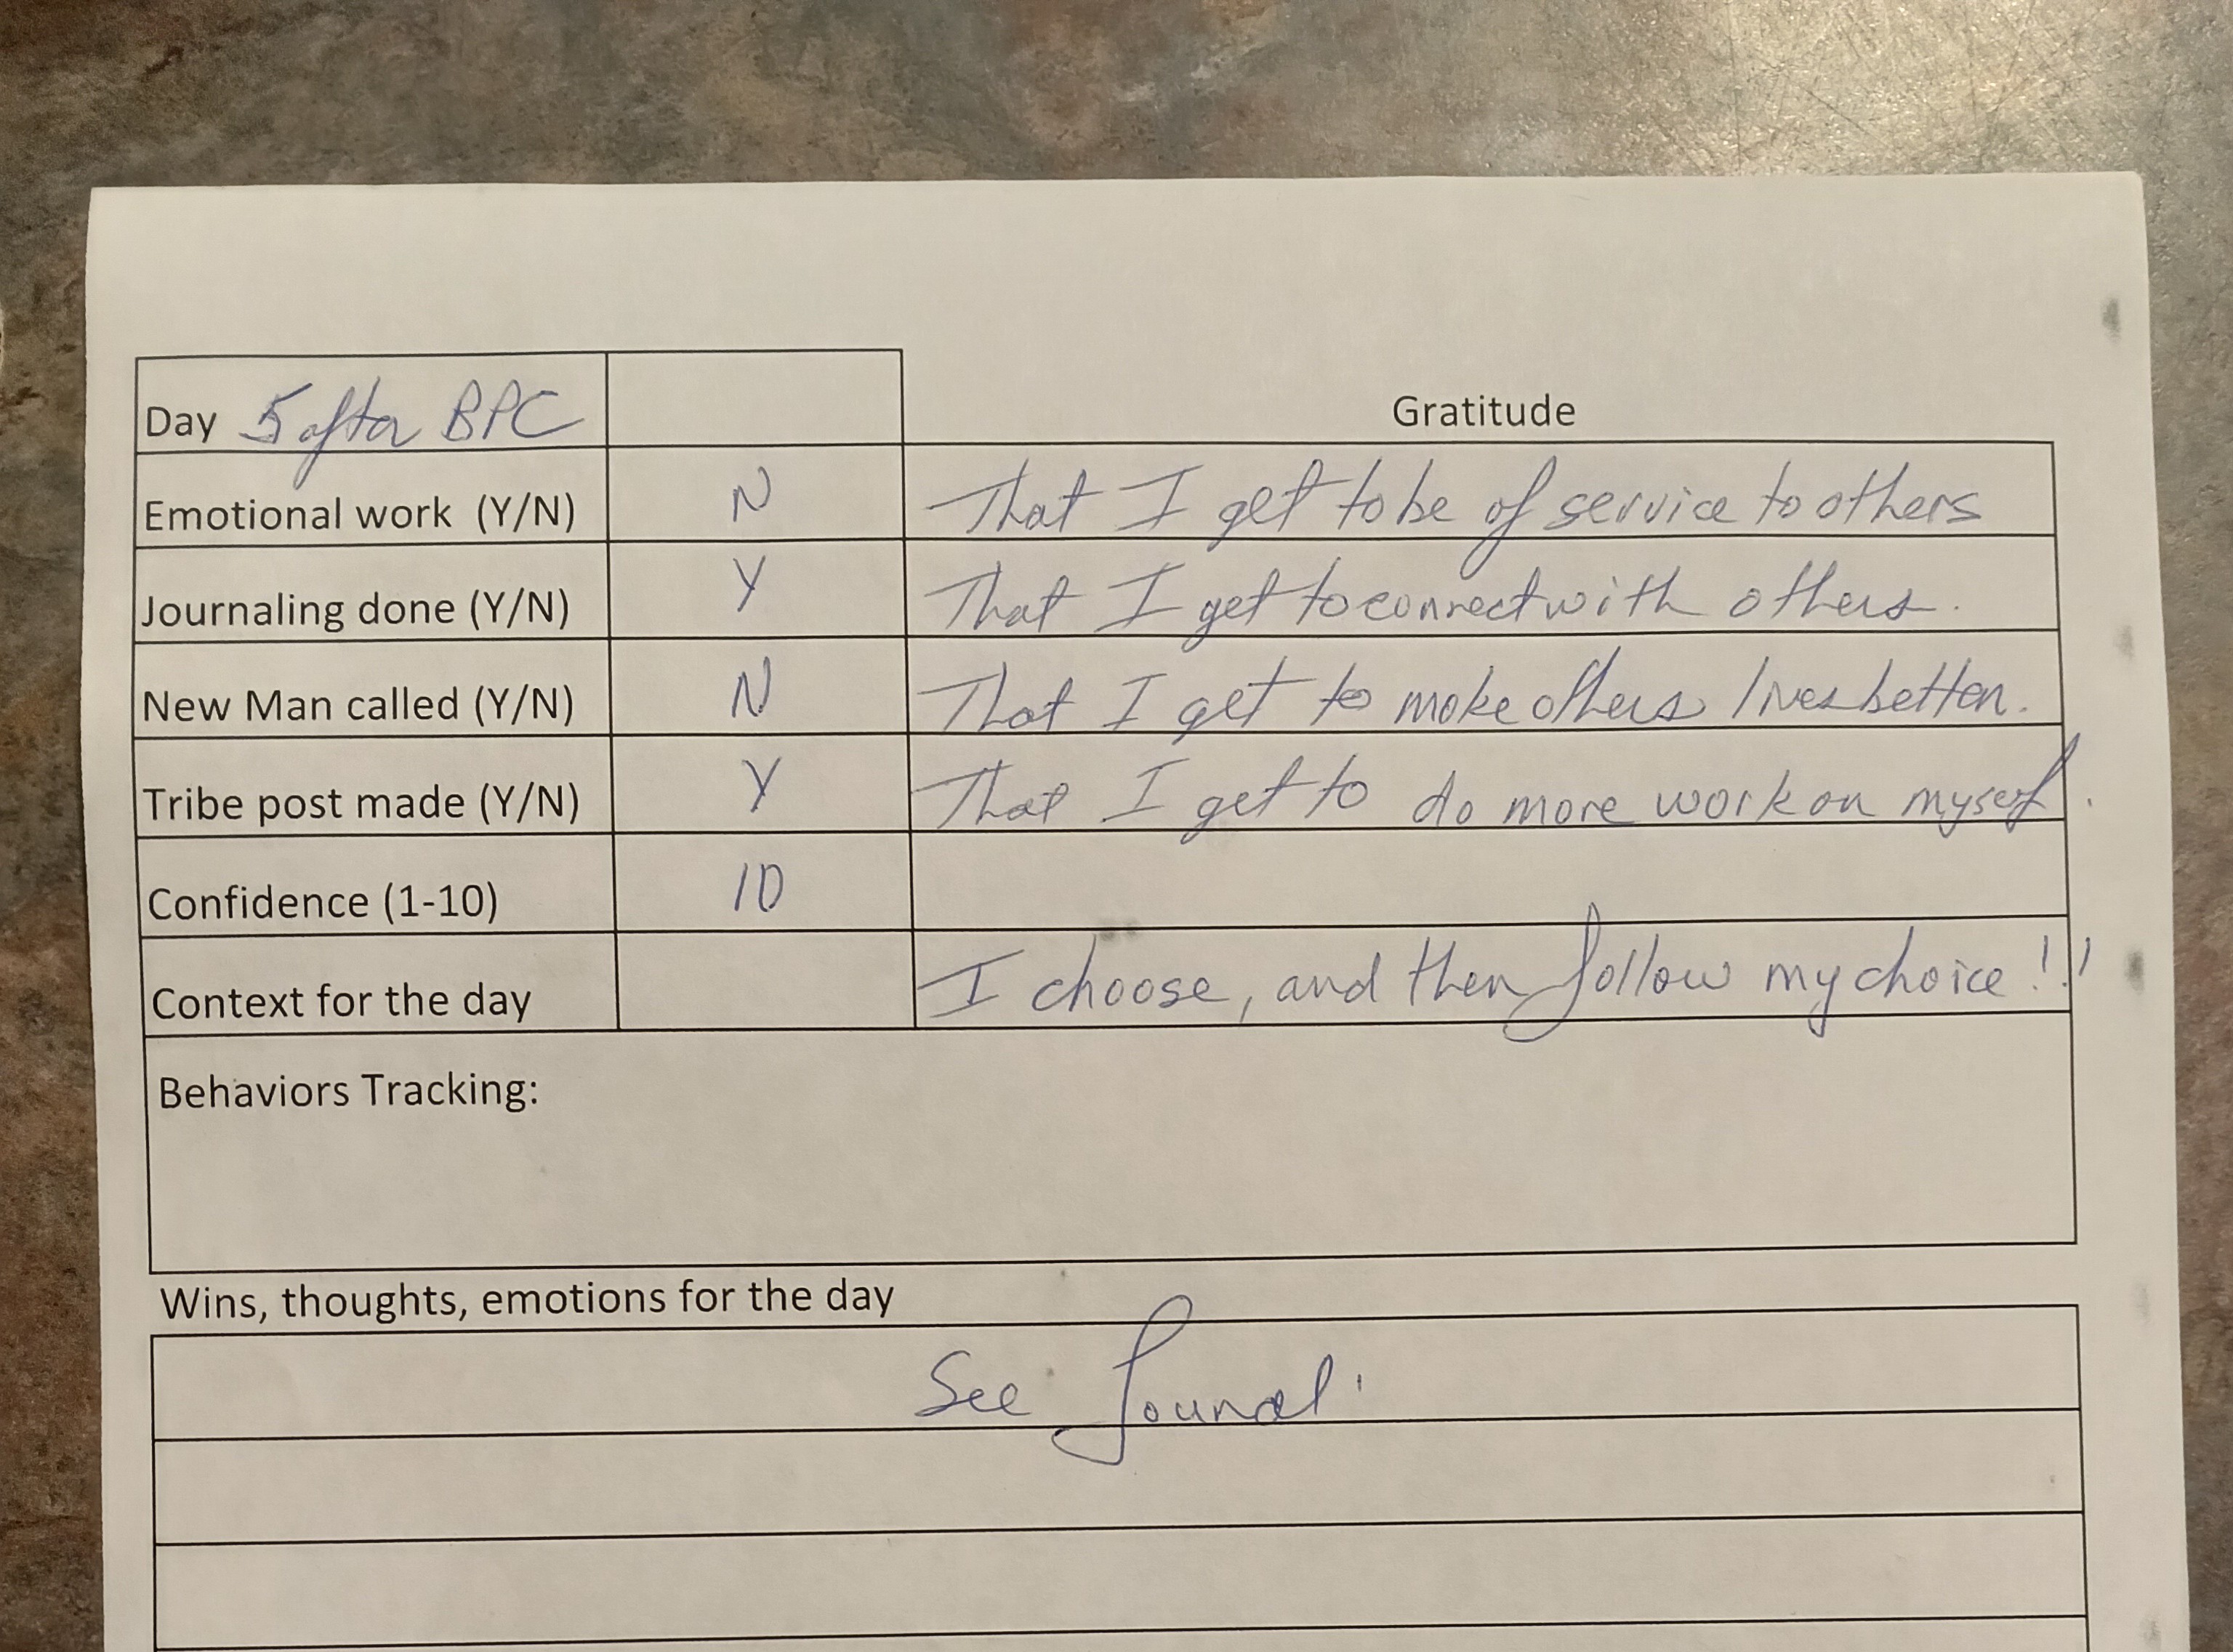 Day 5 after BPC
Gratitude
Emotional work (Y/N) N That I get to be of service to others
Journaling done (Y/N) Y That I get to connect with others.
New Man called (Y/N) N That I get to make others lives better.
Tribe post made (Y/N) Y That I get to do more work on myself.
Confidence (1-10) 10
Context for the day I choose, and then follow my choice!!
Behaviors Tracking:
Wins, thoughts, emotions for the day
See Journal.